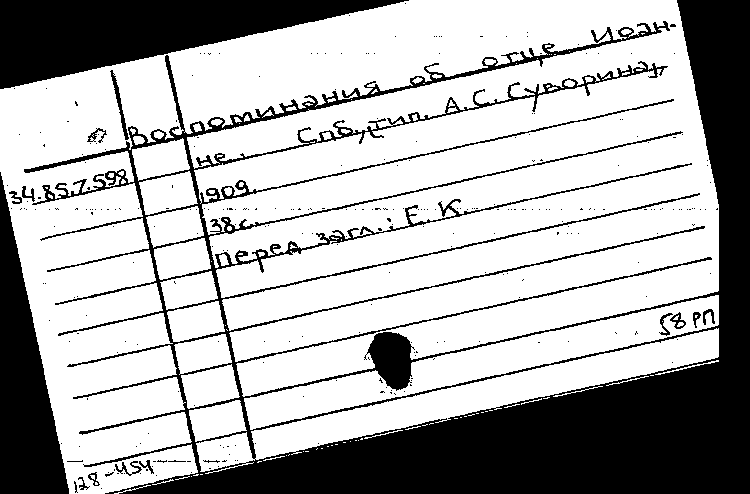 Воспоминания об отце Иоан-
не. Спб., тип. А.С. Суворина,
34.85.7.598
1909.
38с.
перед загл.: Е. К.
58 РП
128-454